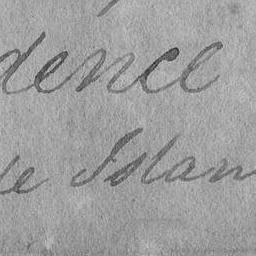 dence
e Islan